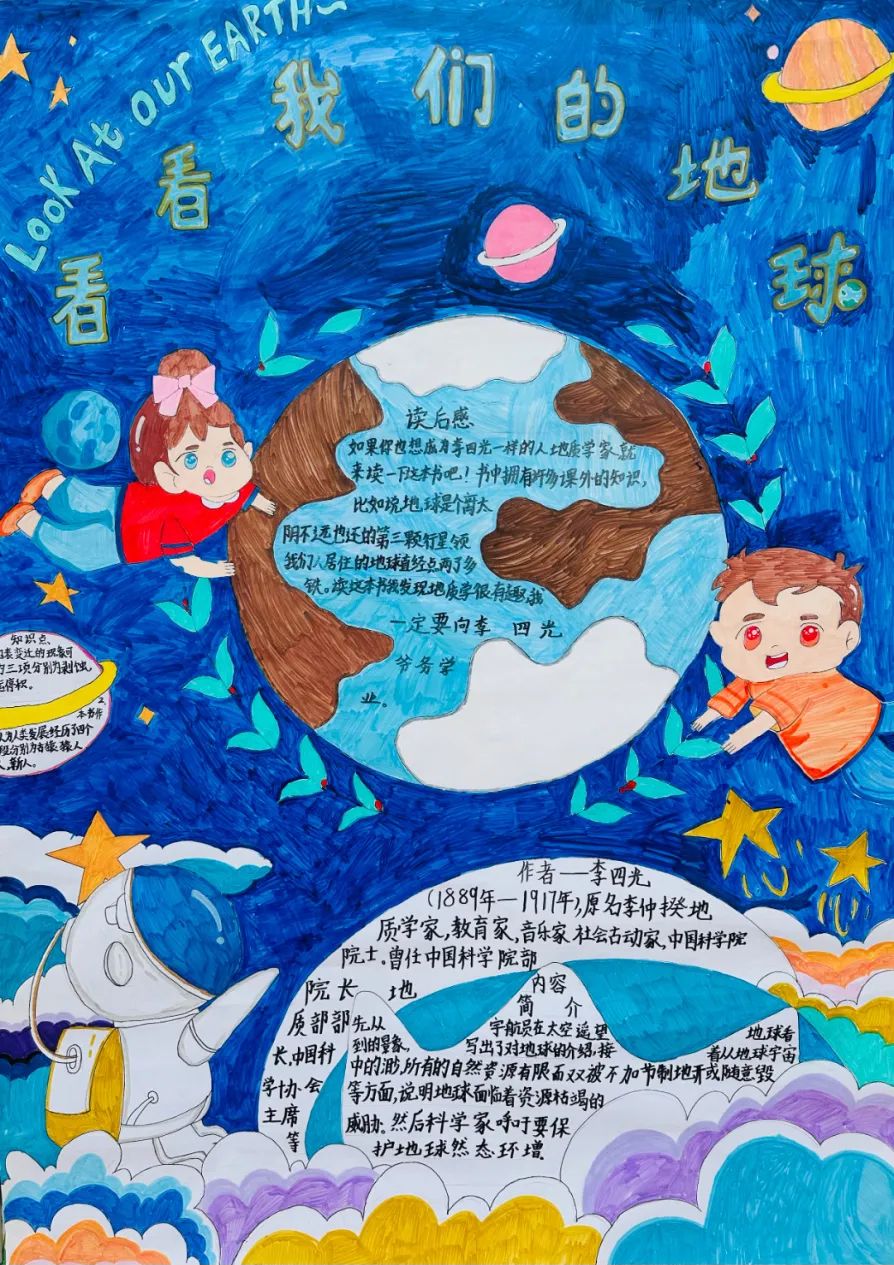 LOOK At OUR EARTH~
看看我们的地球
读后感
如果你也想成为李四光一样的人地质学家,就
来读一下这本书吧!书中拥有许多课外的知识,
比如说,地球是个离太
阴不远也还的第三颗行星领
我们人居住的地球直经点两了多
铁。读这本书我发现地质学很有趣,我
一定要向李四光
爷务学
业。
知识点、
表变迁的现象可
三项分别为剥蚀,
停积。
2.
本书作
认为人类发展经历了四个
段分别为古猿、猿人
人、新人。
作者——李四光
(1889年—1917年),原名李仲揆地
质学家,教育家,音乐家社会古动家,中国科学院
院士。曾任中国科学院部
院长 地
质部部
长,中国科
学协会
主席
等
内容
简介
先从宇航员在太空遥望地球看
到的景象,写出了对地球的介绍,接着从地球宇宙
中的渺,所有的自然资源有限而又被不加节制地开或随意毁
等方面,说明地球面临着资源枯竭的
威胁.然后科学家呼吁要保
护地球然态环增